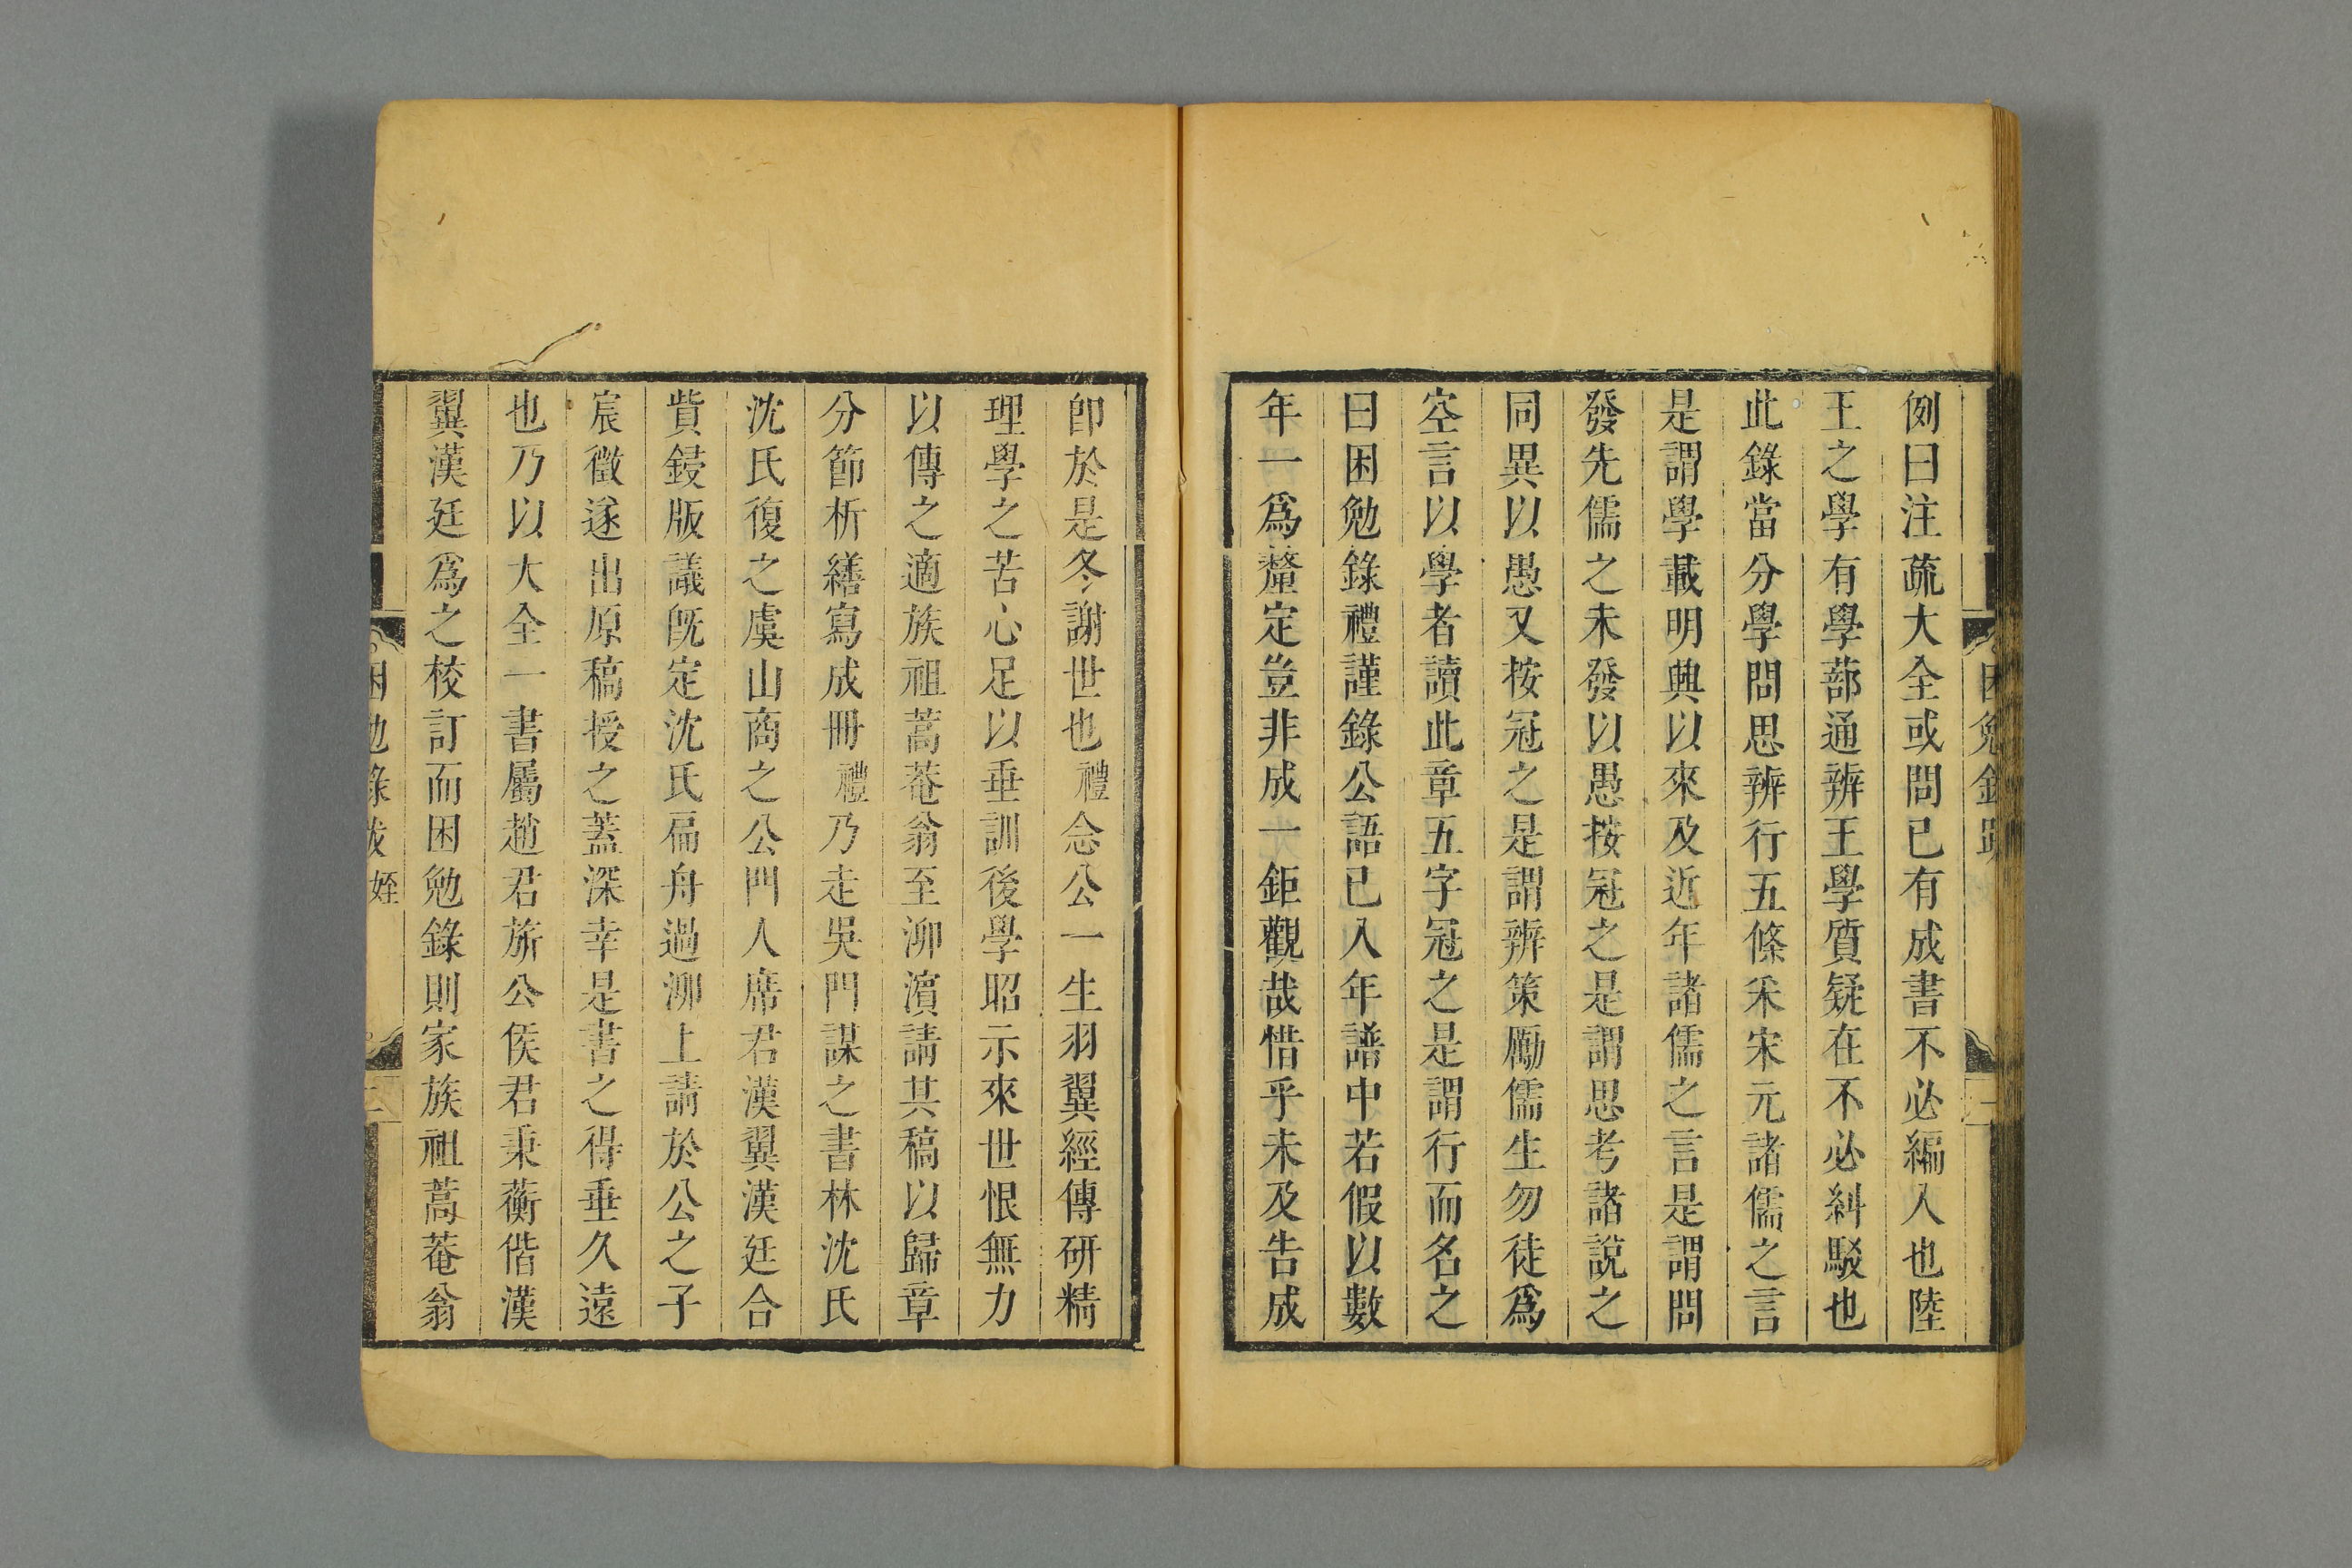 例曰注疏大全或問已有成書不必編入也陸
王之學有學蔀通辨王學質疑在不必糾駁也
此錄當分學問思辨行五條采宋元諸儒之言
是謂學載明興以來及近年諸儒之言是謂問
發先儒之未發以愚按冠之是謂思考諸說之
同異以愚又按冠之是謂辨策勵儒生勿徒爲
空言以學者讀此章五字冠之是謂行而名之
曰困勉錄禮謹錄公語已入年譜中若假以數
年一爲釐定豈非成一鉅觀哉惜乎未及告成
卽於是冬謝世也禮念公一生羽翼經傳硏精
理學之苦心足以垂訓後學昭示來世恨無力
以傳之適族祖蒿菴翁至泖濵請其稿以歸章
分節析繕寫成冊禮乃走吳門謀之書林沈氏
沈氏復之虞山商之公門人席君漢翼漢廷合
貲鋟版議旣定沈氏扁舟過泖上請於公之子
宸徵遂出原稿授之蓋深幸是書之得垂久遠
也乃以大全一書屬趙君旂公侯君秉蘅偕漢
翼漢廷爲之校訂而困勉錄則家族祖蒿菴翁
困勉錄跋 姪